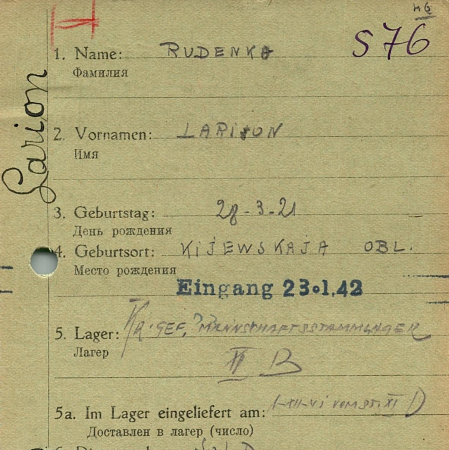 H6
1. Name: RUDENKO S76
Фамилия
Larion
2. Vornamen: LARION
Имя
3. Geburtstag: 28-3-21
День рождения
4. Geburtsort: KIJEWSKAJA OBL.
Место рождения
Eingang 23.1.42
5. Lager: Kr. GEF. MANNSCHAFTSSTAMMLAGER
Лагер
B
5a. Im Lager eingeliefert am:
Доставлен в лагер (число)